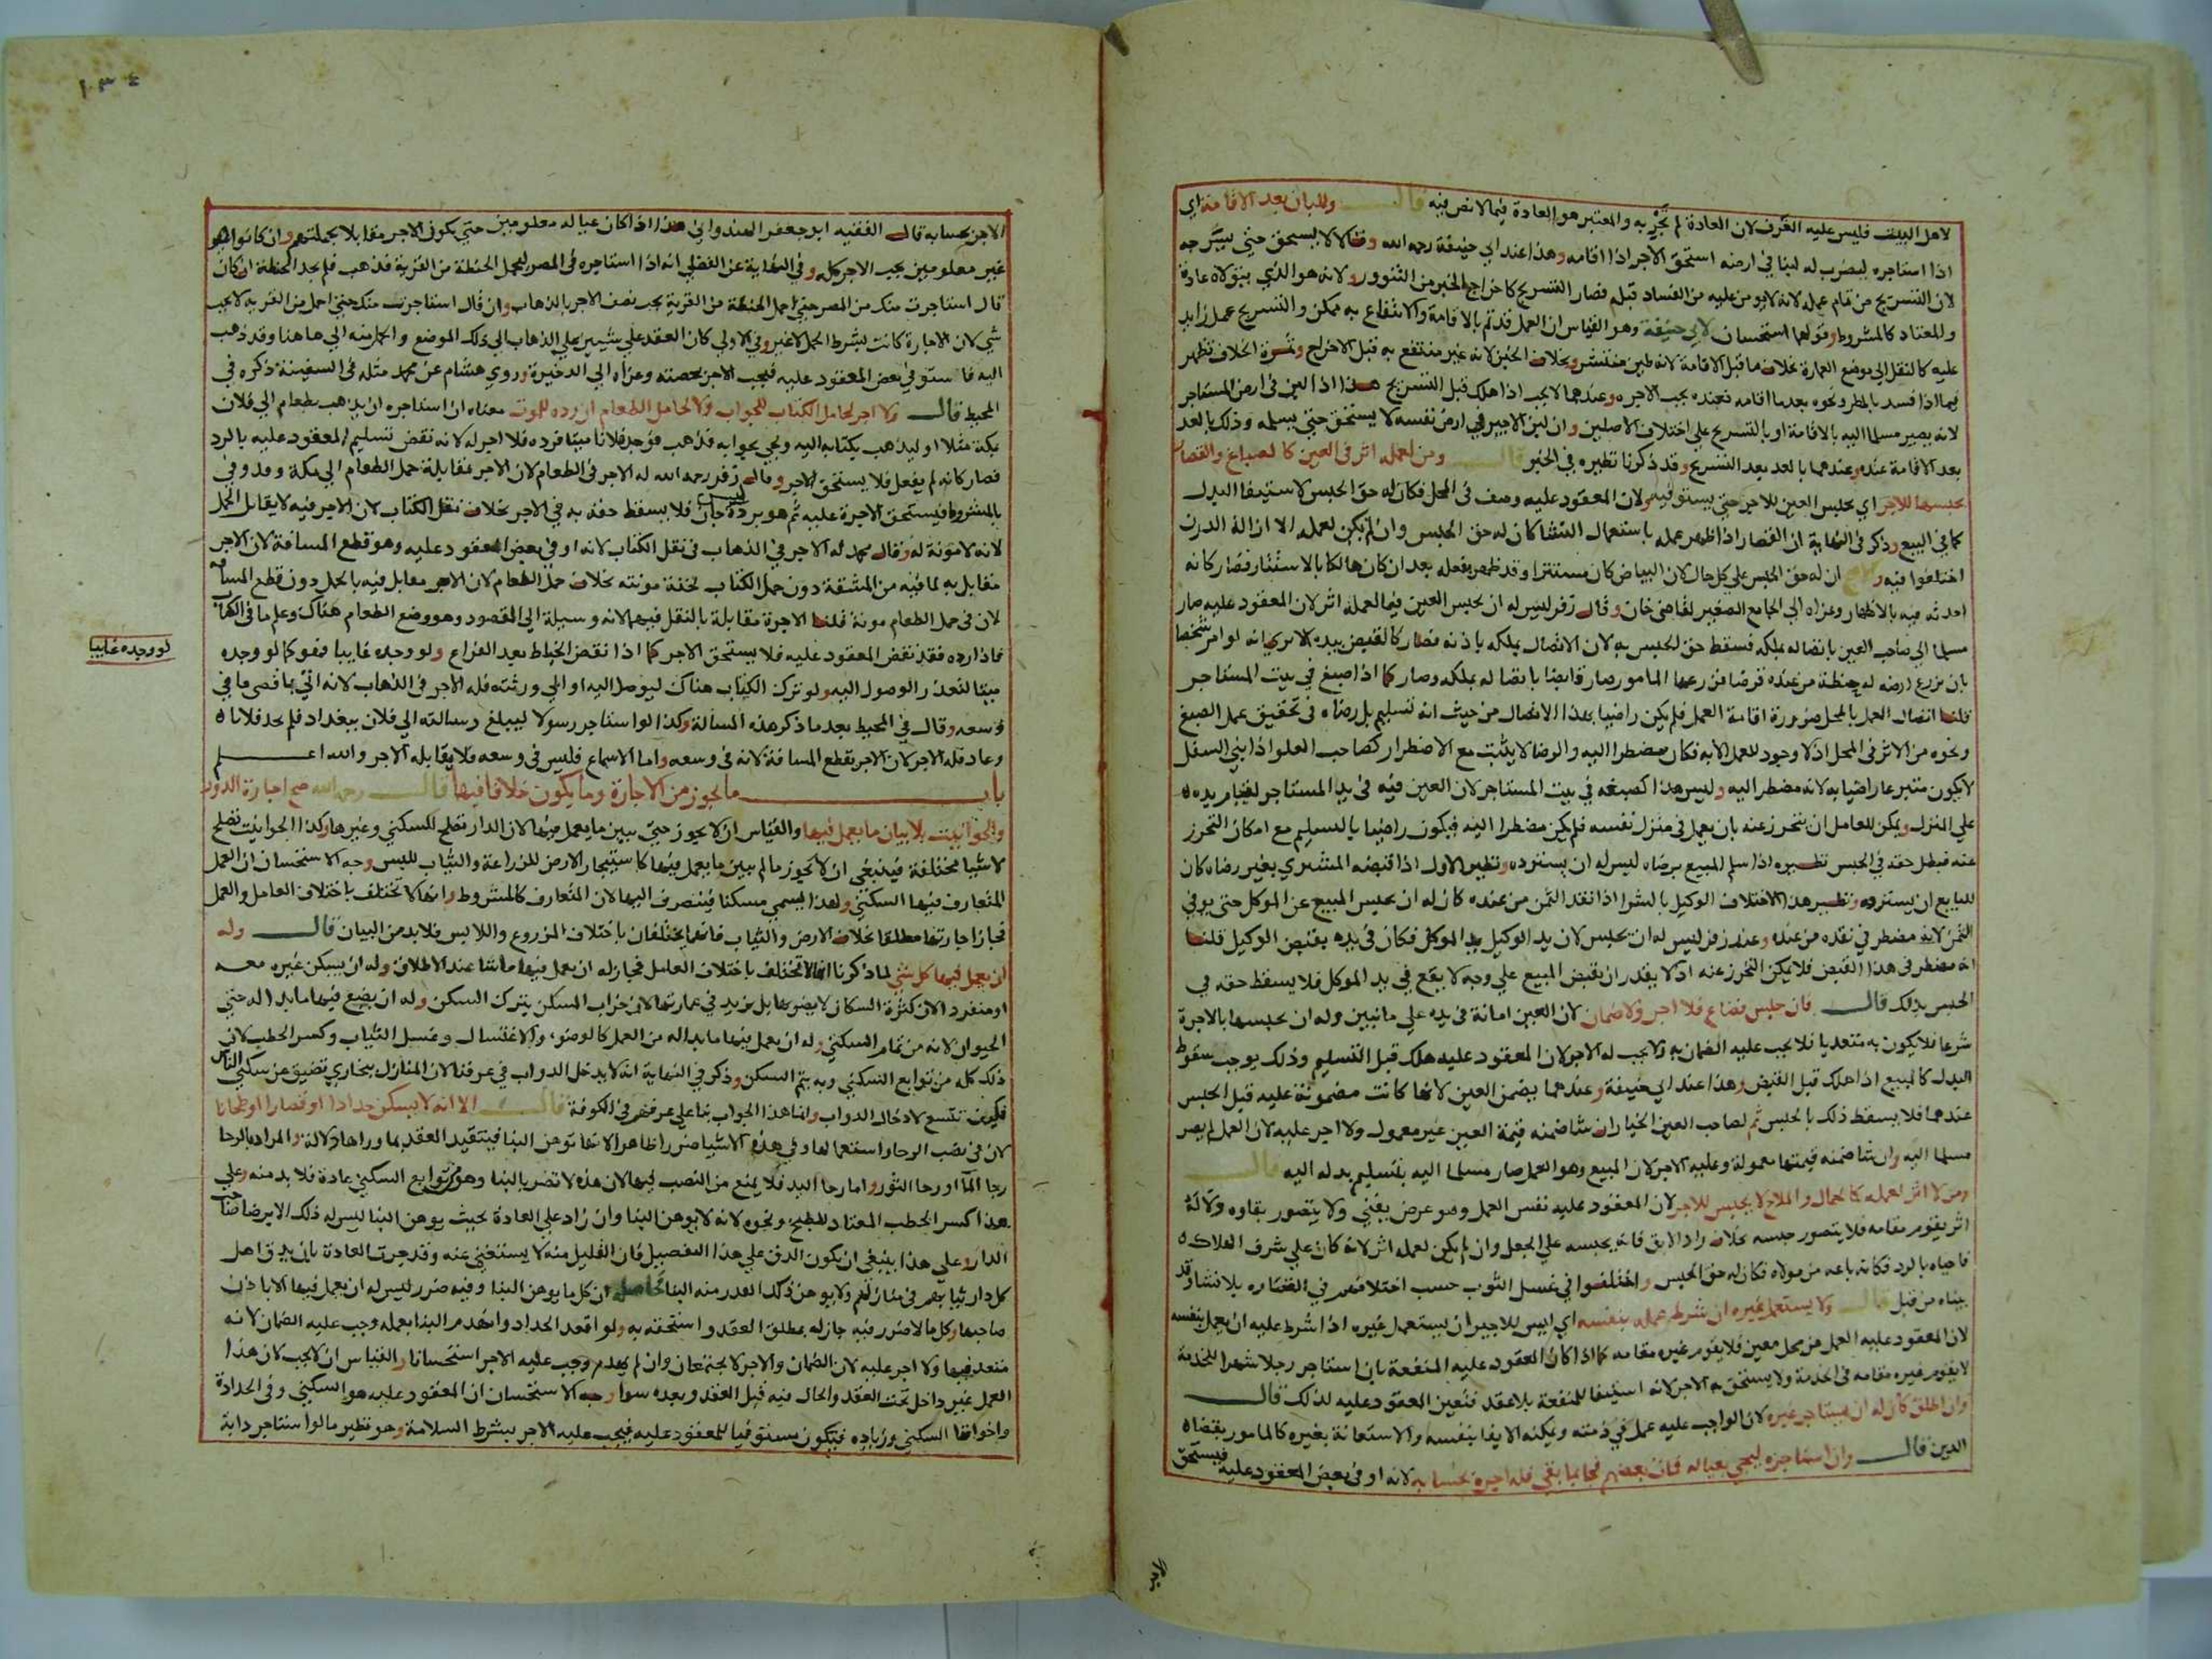 لاهل البيت فليس عليه الغرف لان العادة لم تجر به والمعتبر هو العادة فيما لا نص فيه قال وللبان بعد الاقامة اي
اذا استاجره ليضرب له لبنا في ارضه استحق الاجر اذا اقامه وهذا عند ابي حنيفة رحمه الله وقالا لا يستحق حتى يشرجه
لان التشريج من تمام عمله لانه لا يومن عليه من الفساد قبله فصار التشريج كاخراج الخبز من التنور ولانه هو الذي يتولاه عادة
والمعتاد كالمشروط وقولهما استحسان لابي حنيفة وهو القياس ان العمل قد تم بالاقامة والانتفاع به ممكن والتشريج عمل زايد
عليه كالنقل الى موضع العمارة بخلاف ما قبل الاقامة لانه طين منتشر وبخلاف الخبز لانه غير منتفع به قبل الاخراج وثمرة الخلاف تظهر
فيما اذا فسد بالمطر ونحوه بعد ما اقامه فعنده يجب الاجره وعندهما لا يجب اذا هلك قبل التشريج هذا اذا لبن في ارض المستاجر
لانه يصير مسلما اليه بالاقامة او بالتشريج على اختلاف الاصلين وان لبن الاجير في ارض نفسه لا يستحق حتى يسلمه وذلك بالعد
بعد الاقامة عنده وعندهما بالعد بعد التشريج وقد ذكرنا نظيره في الخبز قال ومن لعمله اثر في العين كالصباغ والقصار
يحبسها للاجر اي يحبس العين للاجر حتى يستوفيه لان المعقود عليه وصف في المحل فكان له حق الحبس لاستيفا البدل
كما في البيع وذكر في النهاية ان القصار اذا ظهر عمله باستعمال النشا كان له حق الحبس وان لم يكن لعمله الا ازالة الدرن
اختلفوا فيه والاصح ان له حق الحبس على كل حال لان البياض كان مستترا وقد ظهر بفعله بعد ان كان هالكا بالاستتار فصار كانه
احدثه فيه بالاظهار وعزاه الى الجامع الصغير لقاضي خان وقال زفر ليس له ان يحبس العين فيما لعمله اثر لان المعقود عليه صار
مسلما الى صاحب العين باتصاله بملكه فسقط حق الحبس به لان الاتصال بملكه باذنه فصار كالقبض بيده الا ترى انه لو امر شخصا
بان يزرع ارضه له بحنطة من عنده قرضا فزرعها المامور صار قابضا باتصاله بملكه وصار كما اذا صبغ في بيت المستاجر
قلنا اتصال العمل بالمحل ضرورة اقامة العمل فلم يكن راضيا بهذا الاتصال من حيث انه تسليم بل رضاه في تحقيق عمل الصبغ
ونحوه من الاثر في المحل اذ لا وجود للعمل الا به فكان مضطرا اليه والرضا لا يثبت مع الاضطرار كصاحب العلو اذا بنى السفل
لا يكون متبرعا راضيا به لانه مضطر اليه وليس هذا كصبغه في بيت المستاجر لان العين فيه في يد المستاجر لقيام يده
على المنزل ويمكن للعامل ان يتحرز عنه بان يعمل في منزل نفسه فلم يكن مضطرا اليه فيكون راضيا بالتسليم مع امكان التحرز
عنه فبطل حقه في الحبس نظيره اذا سلم المبيع برضاه ليس له ان يسترده ونظير الاول اذا قبضه المشتري بغير رضاه كان
للبايع ان يسترده ونظير هذا الاختلاف الوكيل بالشرا اذا نقد الثمن من عنده كان له ان يحبس المبيع عن الموكل حتى يوفي
الثمن لانه مضطر في نقده من عنده وعند زفر ليس له ان يحبس لان يد الوكيل يد الموكل فكان في يده بقبض الوكيل قلنا
انه مضطر في هذا القبض فلا يمكن التحرز عنه اذ لا يقدر ان يقبض المبيع على وجه لا يقع في يد الموكل فلا يسقط حقه في
الحبس بذلك قال فان حبس فضاع فلا اجر ولا ضمان لان العين امانة في يده على ما نبين وله ان يحبسها بالاجرة
شرعا فلا يكون به متعديا فلا يجب عليه الضمان به ولا يجب له الاجر لان المعقود عليه هلك قبل التسليم وذلك يوجب سقوط
البدل كالمبيع اذا هلك قبل القبض وهذا عند ابي حنيفة وعندهما يضمن العين لانها كانت مضمونة عليه قبل الحبس
عندهما فلا يسقط ذلك بالحبس ثم لصاحب العين الخيار ان شا ضمنه قيمة العين غير معمول ولا اجر عليه لان العمل لم يصر
مسلما اليه وان شا ضمنه قيمتها معمولة وعليه الاجر لان المبيع وهو العمل صار مسلما اليه بتسليم بدله اليه قال
ومن لا اثر لعمله كالحمال والملاح لا يحبس للاجر لان المعقود عليه نفس العمل وهو عرض يفنى ولا يتصور بقاوه ولا له
اثر يقوم مقامه فلا يتصور حبسه بخلاف راد الابق فانه يحبسه على الجعل وان لم يكن لعمله اثر لانه كان على شرف الهلاك
فاحياه بالرد فكانه باعه من مولاه فكان له حق الحبس واختلفوا في غسل الثوب حسب اختلافهم في القصاره بلا نشا وقد
بيناه من قبل قال ولا يستعمل غيره ان شرط عمله بنفسه اي ليس للاجير ان يستعمل غيره اذا شرط عليه ان يعمل بنفسه
لان المعقود عليه العمل من محل معين فلا يقوم غيره مقامه كما اذا كان المعقود عليه المنفعة بان استاجر رجلا شهرا للخدمة
لا يقوم غيره مقامه في الخدمة ولا يستحق به الاجر لانه استيفا للمنفعة بلا عقد فتعين المعقود عليه لذلك قال
وان اطلق كان له ان يستاجر غيره لان الواجب عليه عمل في ذمته ويمكنه الايفا بنفسه والاستعانة بغيره كالمامور بقضاه
الدين قال وان استاجره ليجي بعياله فمات بعضهم فجا بما بقي فله اجره بحسابه لانه اوفى بعض المعقود عليه فيستحق
الاجر
١٠٣٤
الاجر بحسابه قال الفقيه ابو جعفر الهندواني هذا اذا كان عياله معلومين حتى يكون الاجر مقابلا بجملتهم وان كانوا
غير معلومين يجب الاجر كله وفي النهاية عن الفضلي انه اذا استاجره في المصر ليحمل الحنطة من القرية فذهب فلم يجد الحنطة ان كان
قال استاجرت منك من المصر حتى احمل الحنطة من القرية يجب نصف الاجر بالذهاب وان قال استاجرت منك حتى احمل من القرية لا يجب
شي لان الاجارة كانت بشرط الحمل لا غير وفي الاولى كان العقد على شيين على الذهاب الى ذلك الموضع والحمل منه الى هاهنا وقد ذهب
اليه فاستوفي بعض المعقود عليه فيجب الاجر بحصته وعزاه الى الذخيرة وروى هشام عن محمد مثله في السفينة ذكره في
المحيط قال ولا اجر لحامل الكتاب للجواب ولا لحامل الطعام ان رده للموت معناه ان استاجره ان يذهب بطعام الى فلان
بمكة مثلا او ليذهب بكتابه اليه ويجي بجوابه فذهب فوجد فلانا ميتا فرده فلا اجر له لانه نقض تسليم المعقود عليه بالرد
فصار كانه لم يفعل فلا يستحق الاجر وقال زفر رحمه الله له الاجر في الطعام لان الاجر بمقابلة حمل الطعام الى مكة وقد وفى
بالمشروط فيستحق الاجرة عليه ثم هو برده جان فلا يسقط حقه به في الاجر بخلاف نقل الكتاب لان الاجر فيه لا يقابل الحمل
لانه لا مونة له وقال محمد له الاجر في الذهاب في نقل الكتاب لانه اوفى بعض المعقود عليه وهو قطع المسافة لان الاجر
مقابل به لما فيه من المشقة دون حمل الكتاب لخفة مونته بخلاف حمل الطعام لان الاجر مقابل فيه بالحمل دون قطع المسافة
لان في حمل الطعام مونة قلنا الاجرة مقابلة بالنقل فيهما لانه وسيلة الى المقصود وهو وضع الطعام هناك وعلم ما في الكتاب
فاذا رده فقد نقض المعقود عليه فلا يستحق الاجر كما اذا نقض الخياط بعد الفراغ ولو وجده غايبا فهو كما لو وجده
لو وجده غايبا
ميتا لتعذر الوصول اليه ولو ترك الكتاب هناك ليوصل اليه او الى ورثته فله الاجر في الذهاب لانه اتى باقصى ما في
وسعه وقال في المحيط بعد ما ذكر هذه المسالة وكذا لو استاجر رسولا ليبلغ رسالته الى فلان ببغداد فلم يجد فلانا
وعاد فله الاجر لان الاجر بقطع المسافة لانه في وسعه واما الاسماع فليس في وسعه فلا يقابله الاجر والله اعلم
باب ما يجوز من الاجارة وما يكون خلافا فيها قال رحمه الله صح اجارة الدور
والحوانيت بلا بيان ما يعمل فيها والقياس ان لا يجوز حتى يبين ما يعمل فيها لان الدار تصلح للسكنى وغيرها وكذا الحوانيت تصلح
لاشيا مختلفة فينبغي ان لا يجوز ما لم يبين ما يعمل فيها كاستيجار الارض للزراعة والثياب للبس وجه الاستحسان ان العمل
المتعارف فيها السكنى ولهذا يسمى مسكنا فينصرف اليها لان المتعارف كالمشروط وانها لا تختلف باختلاف العامل والعمل
فجاز اجارتها مطلقا بخلاف الارض والثياب فانهما يختلفان باختلاف المزروع واللابس فلا بد من البيان قال وله
ان يعمل فيها كل شي لما ذكرنا انها لا تختلف باختلاف العامل فجاز له ان يعمل فيها ما شا عند الاطلاق وله ان يسكن غيره معه
او منفردا لان كثرة السكان لا يضر بها بل يزيد في عمارتها لان خراب المسكن بترك السكن وله ان يضع فيها ما بدا له حتى
الحيوان لانه من تمام السكنى وله ان يعمل فيها ما بدا له من العمل كالوضو، والاغتسال وغسل الثياب وكسر الحطب لان
ذلك كله من توابع السكنى وبه يتم السكن وذكر في النهاية انه لا يدخل الدواب في عرفنا لان المنازل ببخاري تضيق عن سكنى الناس
فكيف تتسع لادخال الدواب وانما هذا الجواب بنا على عرفهم في الكوفة قال الا انه لا يسكن حدادا او قصارا او طحانا
لان في نصب الرحا واستعمالها وفي هذه الاشيا ضررا ظاهرا لانها توهن البنا فيتقيد العقد بما وراها دلالة والمراد بالرحا
رحا الما او رحا الثور واما رحا اليد فلا يمنع من النصب فيها لان هذه لا تضر بالبنا وهو من توابع السكنى عادة فلا بد منه وعلى
هذا كسر الحطب المعتاد للطبخ ونحوه لانه لا يوهن البنا وان زاد على العادة بحيث يوهن البنا ليس له ذلك الا برضا صاحب
الدار وعلى هذا ينبغي ان يكون الدق على هذا التفصيل فان القليل منه لا يستغنى عنه وقد جرت العادة بان يدق اهل
كل دار ثيابهم في منازلهم ولا يوهن ذلك القدر منه البنا فحاصله ان كل ما يوهن البنا وفيه ضرر ليس له ان يعمل فيها الا باذن
صاحبها وكل ما لا ضرر فيه جاز له بمطلق العقد واستحقه به ولو اقعد الحداد وانهدم البنا بعمله وجب عليه الضمان لانه
متعد فيها ولا اجر عليه لان الضمان والاجر لا يجتمعان وان لم ينهدم وجب عليه الاجر استحسانا والقياس ان لا يجب لان هذا
العمل غير داخل تحت العقد والحال فيه قبل العقد وبعده سوا وجه الاستحسان ان المعقود عليه هو السكنى وفي الحدادة
واخواتها السكنى وزياده فيكون مستوفيا للمعقود عليه فيجب عليه الاجر بشرط السلامة وهو نظير ما لو استاجر دابة